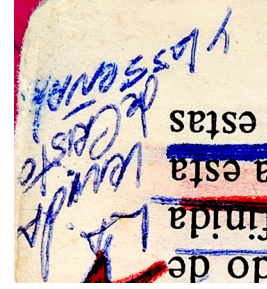 do de
finida
a esta
estas
LA
venida
de Cristo
Y LAS